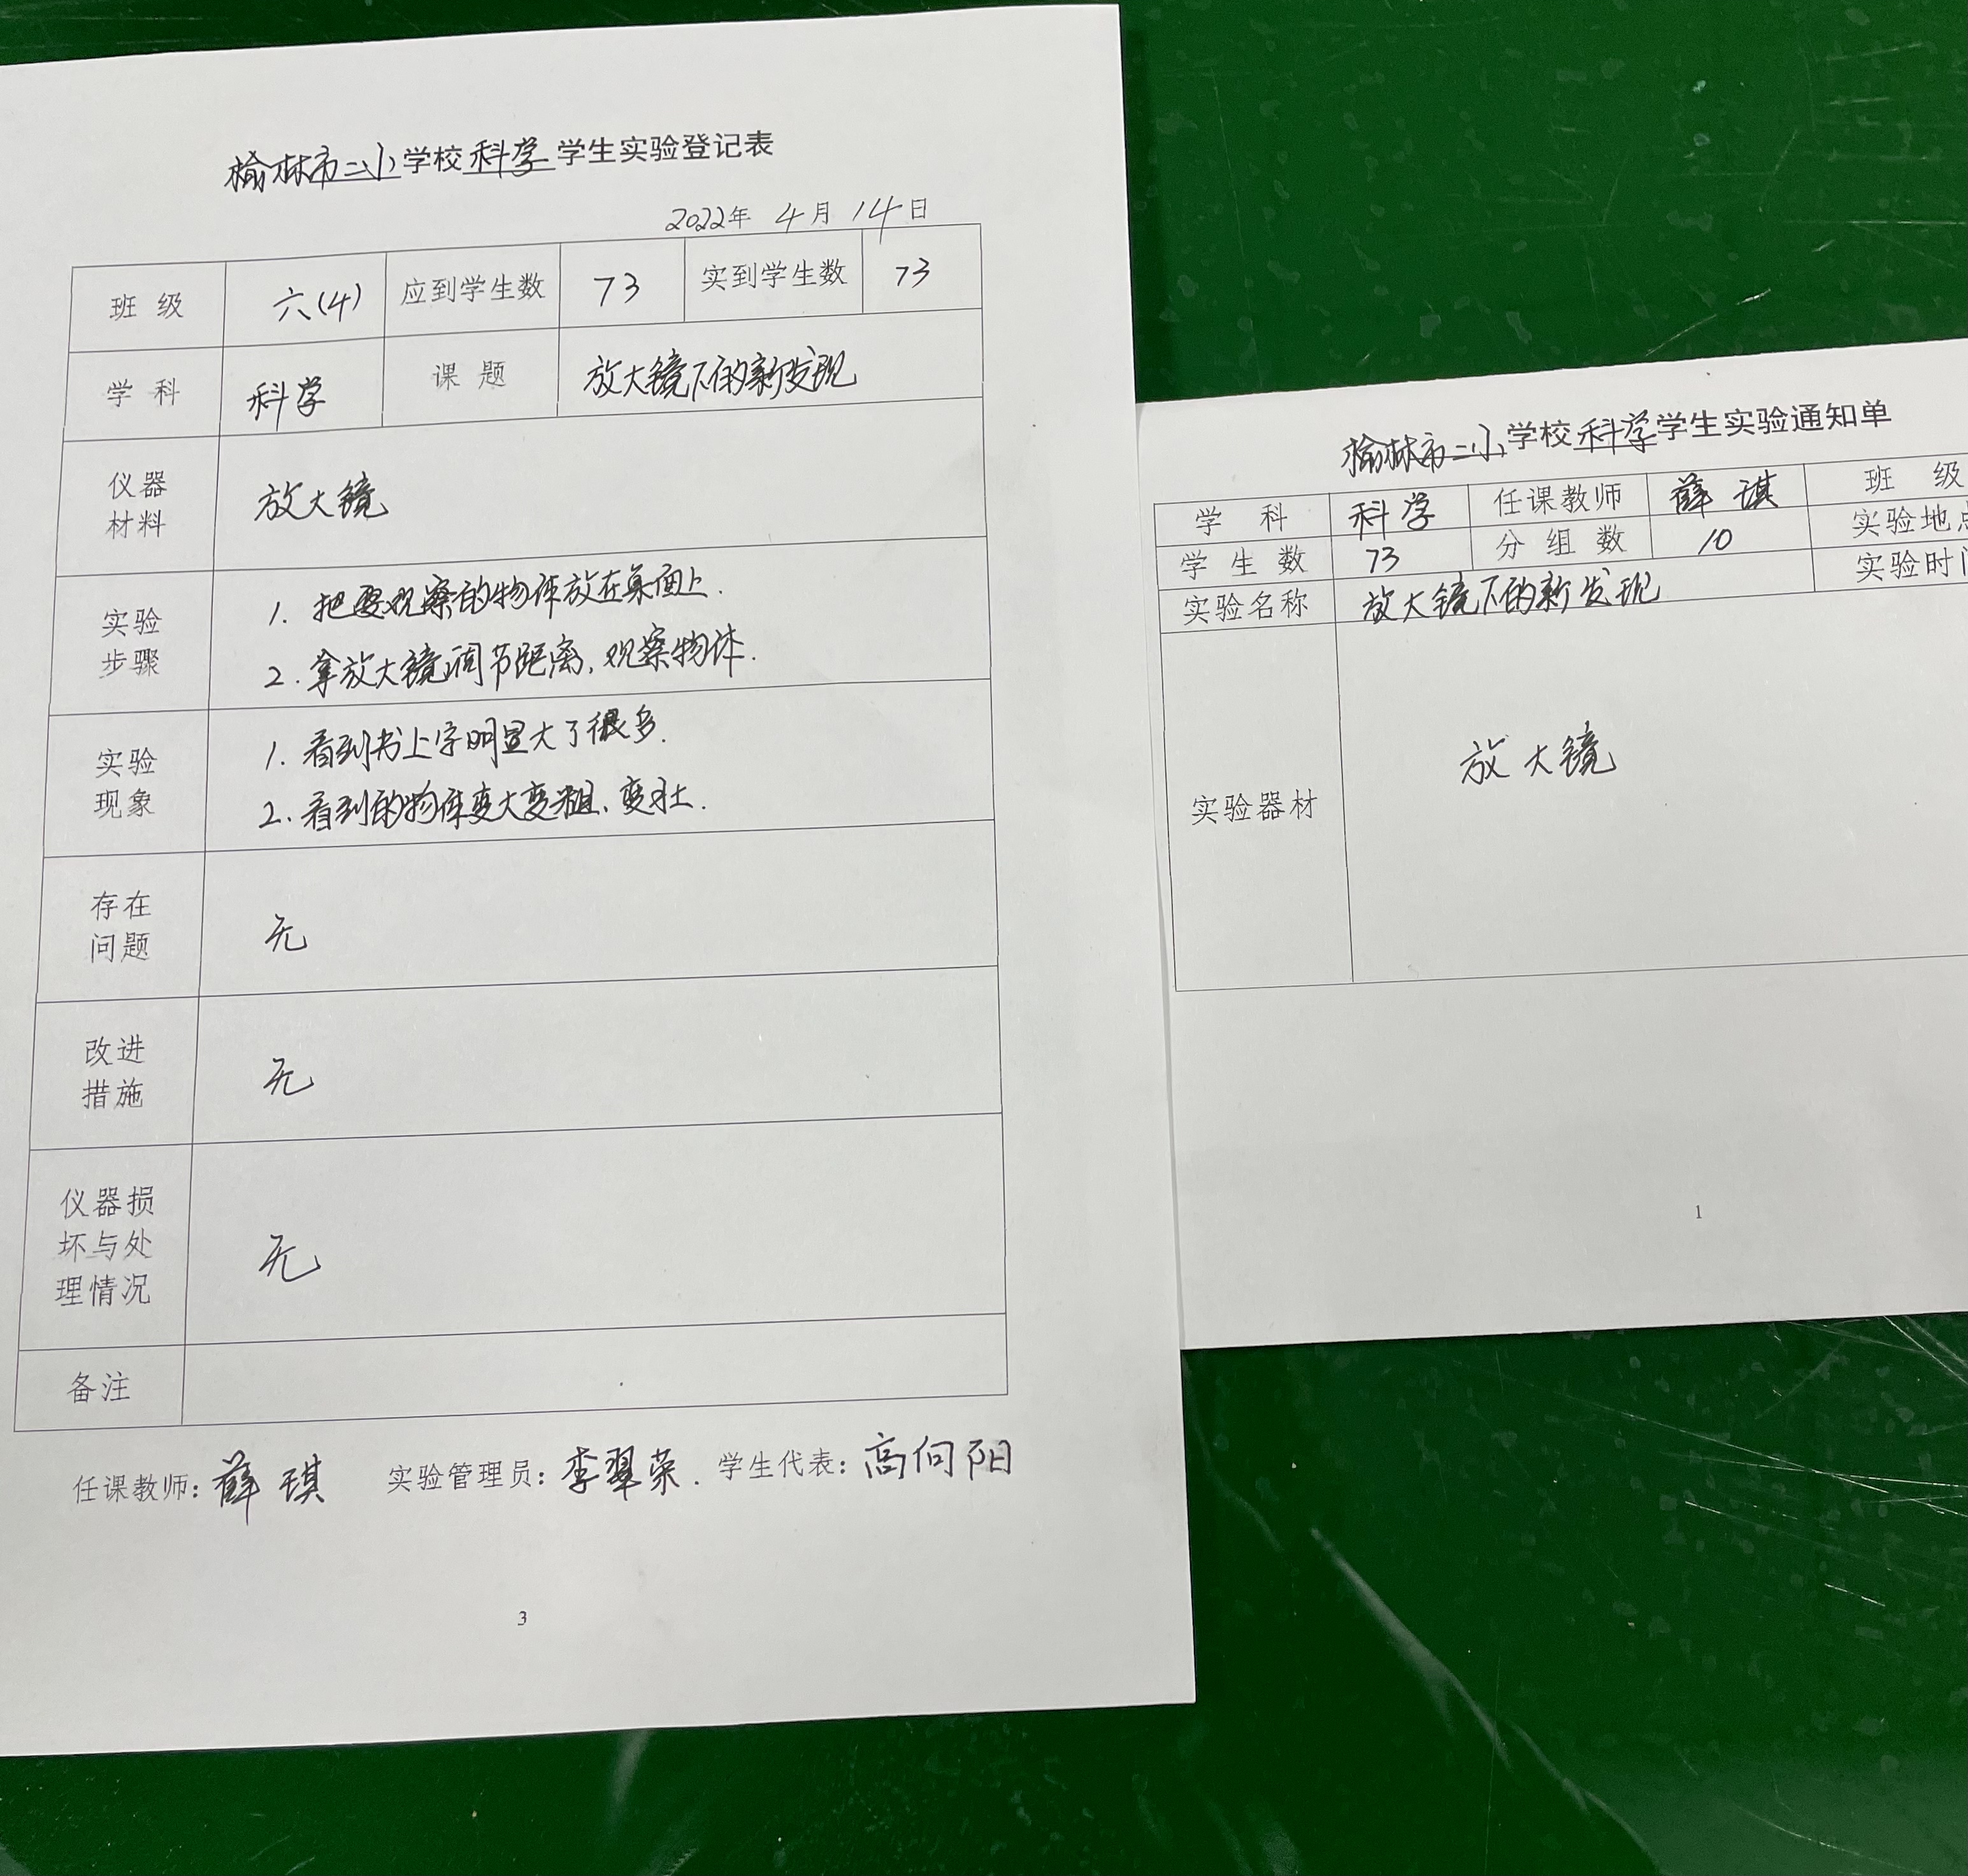 榆林市二小学校科学学生实验登记表
2022年 4月 14日
班 级 六(4) 应到学生数 73 实到学生数 73
学 科 科学 课 题 放大镜下的新发现
仪器
材料
放大镜
实验
步骤
1. 把要观察的物体放在桌面上.
2. 拿放大镜调节距离,观察物体.
实验
现象
1. 看到书上字明显大了很多.
2. 看到的物体变大变粗、变壮.
存在
问题
无
改进
措施
无
仪器损
坏与处
理情况
无
备注
任课教师: 薛琪 实验管理员: 李翠荣. 学生代表: 高向阳
3
榆林市二小学校科学学生实验通知单
学 科 科学 任课教师 薛琪 班 级
学 生 数 73 分 组 数 10 实验地点
实验名称 放大镜下的新发现 实验时间
实验器材 放大镜
1